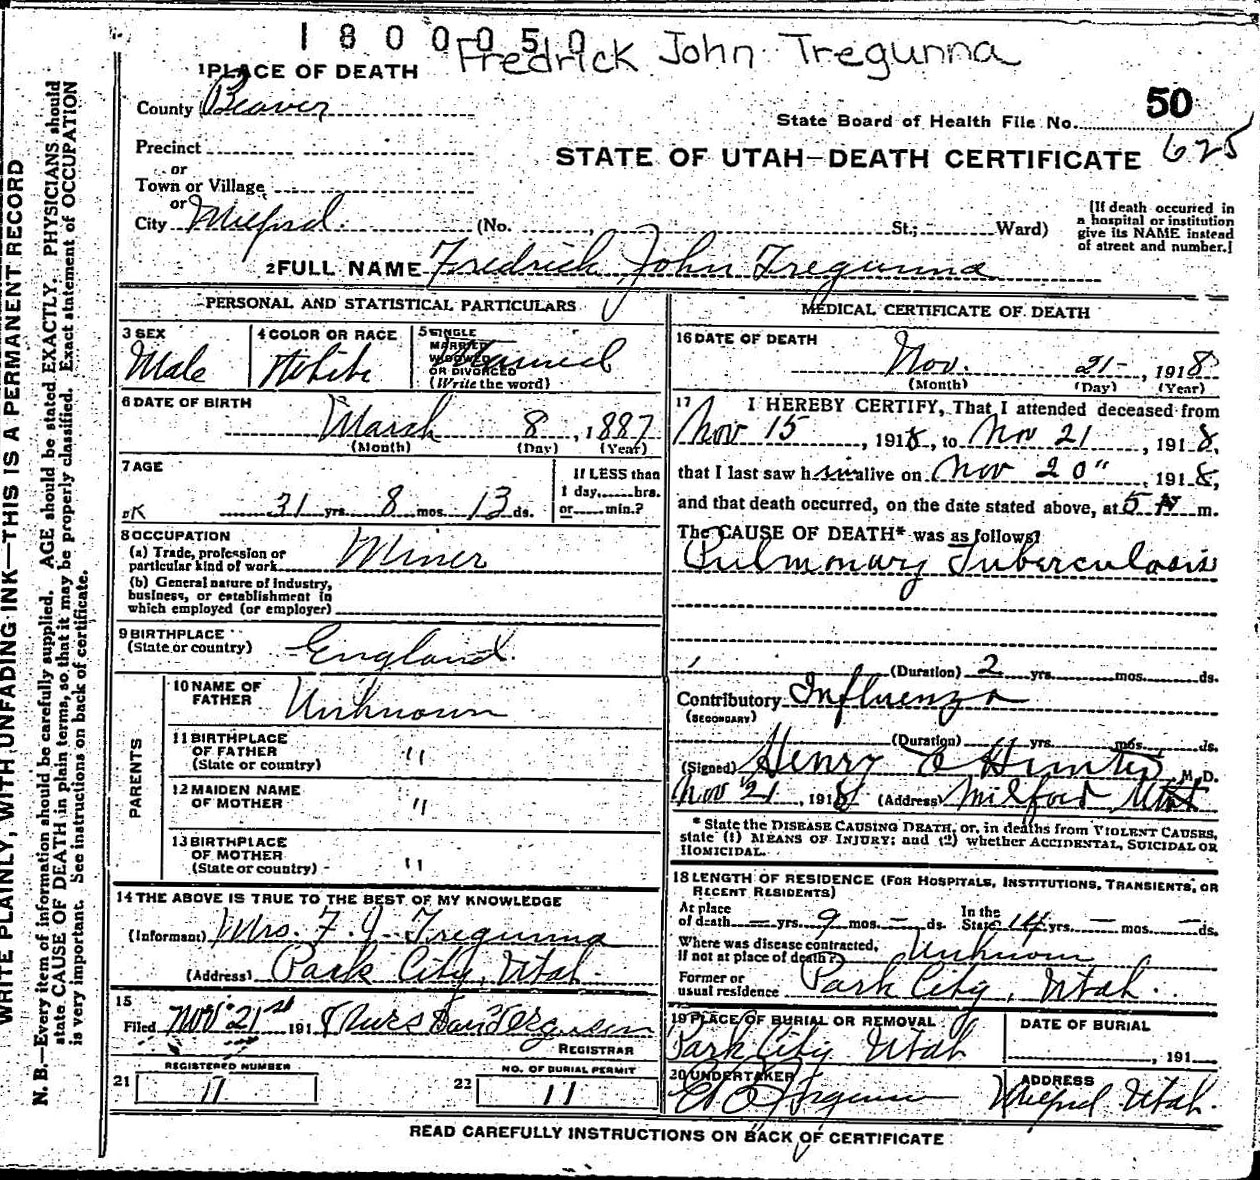 1800050
Fredrick John Tregunna
1 PLACE OF DEATH
County Beaver
50
State Board of Health File No.
625
Precinct
or
Town or Village
or
STATE OF UTAH—DEATH CERTIFICATE
City Milford. (No. , St.; Ward)
[If death occurred in
a hospital or institution
give its NAME instead
of street and number.]
2 FULL NAME Fredrick John Tregunna
PERSONAL AND STATISTICAL PARTICULARS
3 SEX
Male
4 COLOR OR RACE
White
5 SINGLE
MARRIED
WIDOWED
OR DIVORCED
(Write the word)
Married
6 DATE OF BIRTH
March 8, 1887
(Month) (Day) (Year)
7 AGE
OK 31 yrs. 8 mos. 13 ds.
If LESS than
1 day,......hrs.
or......min.?
8 OCCUPATION
(a) Trade, profession or
particular kind of work Miner
(b) General nature of industry,
business, or establishment in
which employed (or employer)
9 BIRTHPLACE
(State or country) England.
PARENTS
10 NAME OF
FATHER Unknown
11 BIRTHPLACE
OF FATHER
(State or country) "
12 MAIDEN NAME
OF MOTHER "
13 BIRTHPLACE
OF MOTHER
(State or country) "
14 THE ABOVE IS TRUE TO THE BEST OF MY KNOWLEDGE
(Informant) Mrs. F. J. Tregunna
(Address) Park City, Utah.
15
Filed Nov 21st 1918
REGISTRAR
REGISTERED NUMBER
21 17
NO. OF BURIAL PERMIT
22 11
MEDICAL CERTIFICATE OF DEATH
16 DATE OF DEATH
Nov. 21, 1918
(Month) (Day) (Year)
17 I HEREBY CERTIFY, That I attended deceased from
Nov 15, 1918, to Nov 21, 1918,
that I last saw him alive on Nov 20", 1918,
and that death occurred, on the date stated above, at 5 m.
The CAUSE OF DEATH* was as follows:
Pulmonary Tuberculosis
(Duration) 2 yrs. mos. ds.
Contributory Influenza
(SECONDARY)
(Duration) yrs. mos. ds.
(Signed) Henry C Hunter M. D.
Nov 21, 1918 (Address) Milford Utah
* State the DISEASE CAUSING DEATH, or, in deaths from VIOLENT CAUSES,
state (1) MEANS OF INJURY; and (2) whether ACCIDENTAL, SUICIDAL OR
HOMICIDAL.
18 LENGTH OF RESIDENCE (FOR HOSPITALS, INSTITUTIONS, TRANSIENTS, OR
RECENT RESIDENTS)
At place
of death — yrs. 9 mos. — ds. In the
State 14 yrs. — mos. — ds.
Where was disease contracted,
if not at place of death? Unknown
Former or
usual residence Park City, Utah.
19 PLACE OF BURIAL OR REMOVAL
Park City Utah
DATE OF BURIAL
, 191
20 UNDERTAKER
ADDRESS
Milford Utah.
READ CAREFULLY INSTRUCTIONS ON BACK OF CERTIFICATE
WRITE PLAINLY, WITH UNFADING INK—THIS IS A PERMANENT RECORD
N. B.—Every item of information should be carefully supplied. AGE should be stated EXACTLY. PHYSICIANS should
state CAUSE OF DEATH in plain terms, so that it may be properly classified. Exact statement of OCCUPATION
is very important. See instructions on back of certificate.